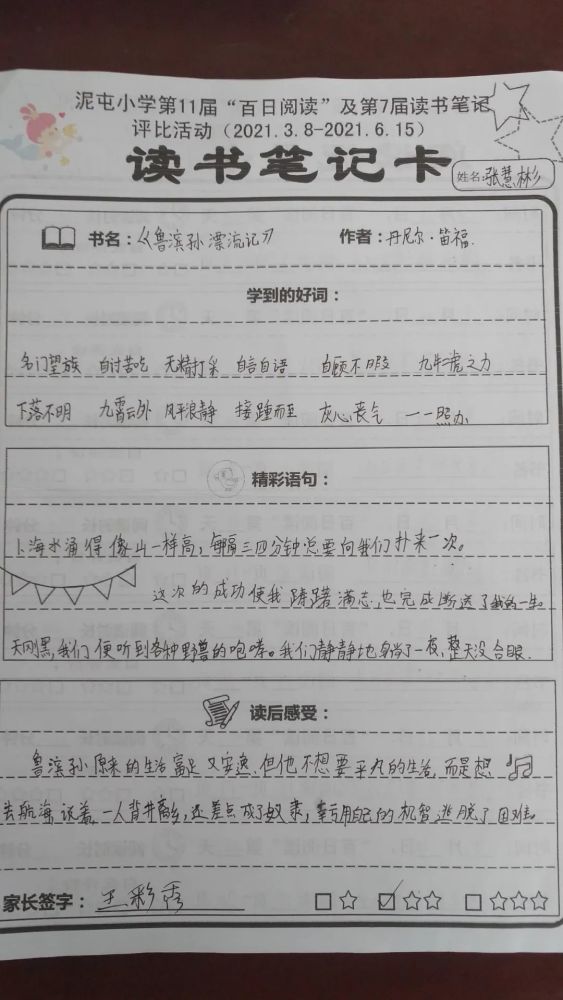 泥屯小学第11届“百日阅读”及第7届读书笔记
评比活动（2021.3.8-2021.6.15）
读书笔记卡
姓名:张慧彬
书名：《鲁滨孙漂流记》 作者：丹尼尔·笛福.
学到的好词：
名门望族 自讨苦吃 无精打采 自言自语 自顾不暇 九牛虎之力
下落不明 九霄云外 风平浪静 接踵而至 灰心丧气 一一照办
精彩语句：
1.海水涌得像山一样高，每隔三四分钟总要向我们扑来一次。
这次的成功使我踌躇满志,也完成断送了我的一生。
天刚黑,我们便听到各种野兽的咆哮。我们静静地躺了一夜,整天没合眼.
读后感受：
鲁滨孙原来的生活富足又安逸.但他不想要平凡的生活,而是想
去航海,说着一人背井离乡,还差点成了奴隶,幸亏用自己的机智逃脱了困难。
家长签字：王彩秀